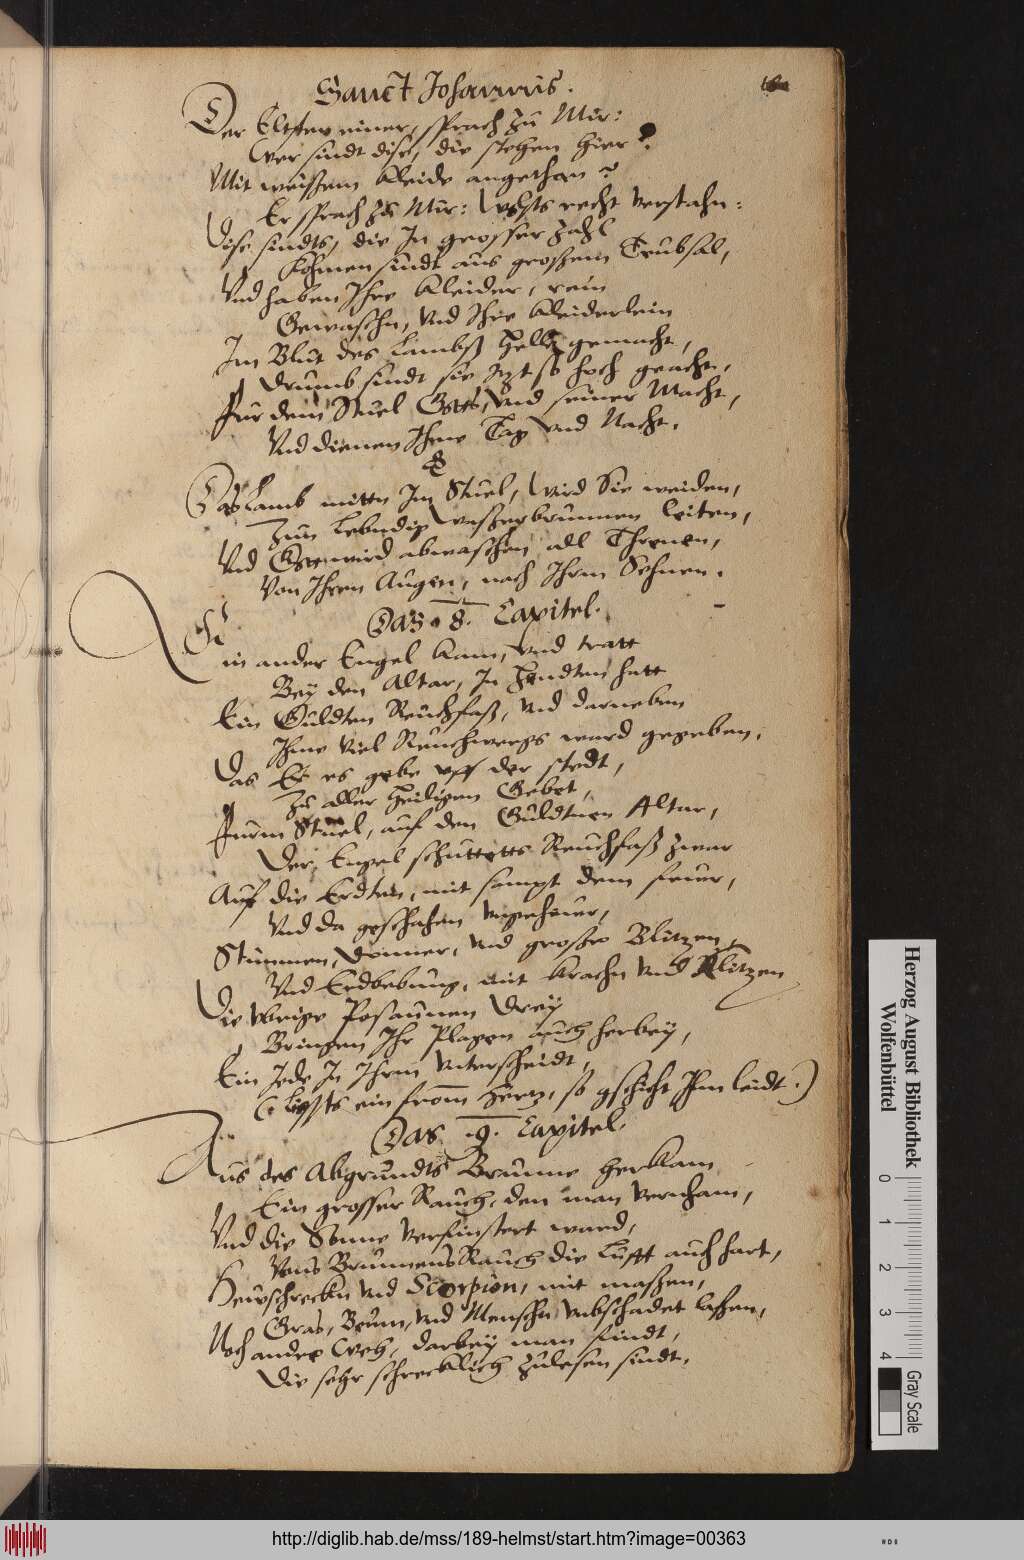 Sanct Johannis.
Der Eltsten einer, sprach zu Mir:
Wer sindt dise, die stehen hier?
Mit weissem Kleide angethan?
Er sprach zu Mir: recht verstahn:
Dise sindts, die In grosser zahl
Kohmen sindt aus grossem Trubsal,
Vnd haben Ihre Kleider, rein
Gewaschn, Vnd Ihre Kleiderlein
Im Blut des Lambß Hell gemacht,
Drumb sindt sie Itzt so hoch geacht,
Fur dem Stuel Gotts, Vnd seiner Macht,
Vnd dienen Ihme Tag Vnd Nacht.
Das Lamb mittn Im Stuel, Wird Sie weiden,
Zun Lebndig Wasserbrunnen leiten,
Vnd Gott wird abwaschen all Threnen,
Von Ihren Augen, nach Ihrm Sehnen.
Das .8. Capitel.
Ein ander Engel kam, Vnd tratt
Bey den Altar, In Hendten hatt
Ein Guldten Reuchfaß, Vnd darneben
Ihme Viel Reuchwergs ward gegeben,
Das Er es gebe vff der stedt,
Zu aller Heiligen Gebet,
Furm Stuel, auf den Guldtnen Altar,
Der Engel schuttetts Reuchfaß zwar
Auf die Erdten, mit sampt dem feuer,
Vnd da geschahen vngeheuer,
Stimmen, Donner, Vnd grosse Blitzen,
Vnd Erdbebung, mit Krachn Vnd
Die vbrige Posaunen Drey
Bringen Ihr Plagen auch herbey,
Ein Jede In Ihrm Vnterscheidt,
(Lißts ein from Hertz, so gschicht Ihm leidt.)
Das .9. Capitel.
Aus des Abgrundts Brunne herkam
Ein grosser Rauch, den man Vernham,
Vnd die Sonne Verfinstert ward,
Vons Brunnens Rauch die Lufft auch hart,
Hewschreckn Vnd Scorpion, mit massen,
Gras, Beum, Vnd Menschn vnbschadet lassen,
Noch ander Weh, darbey man findt,
Die sehr schrecklich Zulesen sindt.
Herzog August Bibliothek
Wolfenbüttel
0 1 2 3 4
Gray Scale
http://diglib.hab.de/mss/189-helmst/start.htm?image=00363